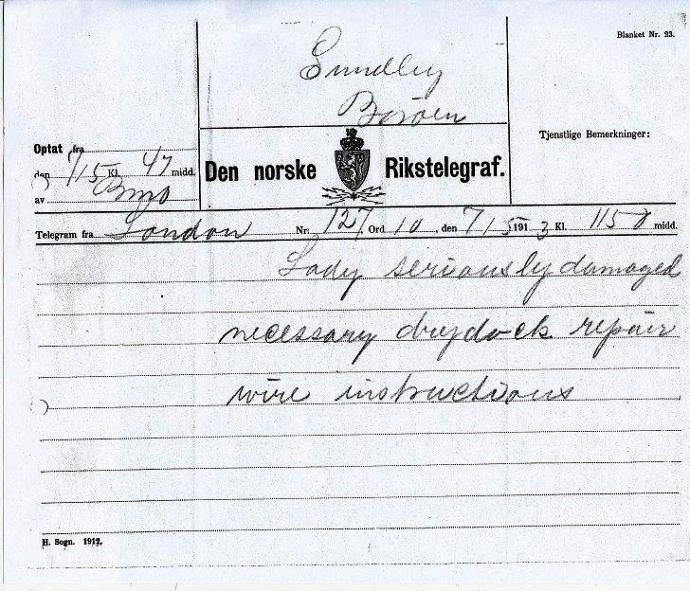 Blanket Nr. 23.
Smedley
Borøen
Tjenstlige Bemerkninger:
Optat fra
den 7/15 Kl. 47 midd.
av
Den norske Rikstelegraf.
Telegram fra London Nr. 127 Ord 10, den 7/5 1913 Kl. 1150 midd.
Lady seriously damaged
necessary drydock repair
wire instructions
H. Sogn. 1912.